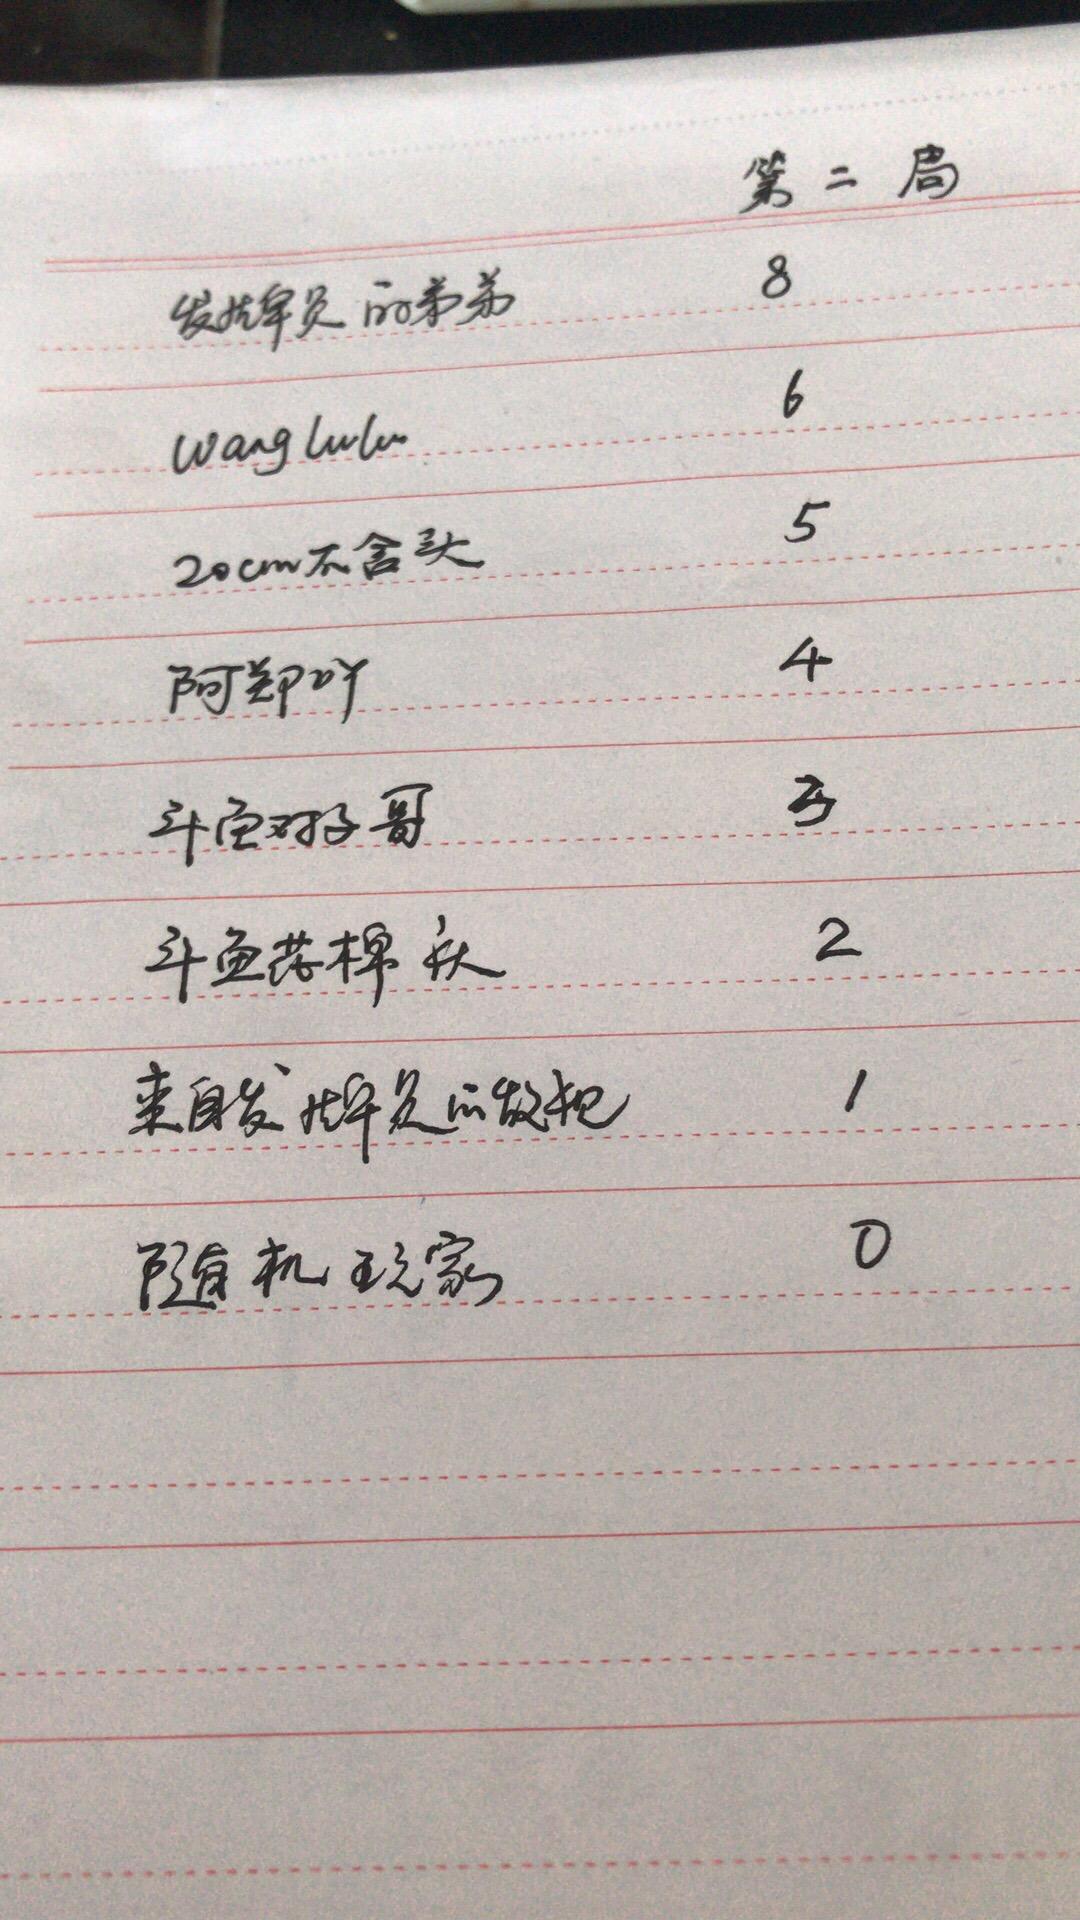 第二局
发牌员的弟弟 8
wanglulu 6
20cm不含头 5
阿郑吖 4
斗鱼对子哥 3
斗鱼 2
来自发牌员的 1
随机玩家 0